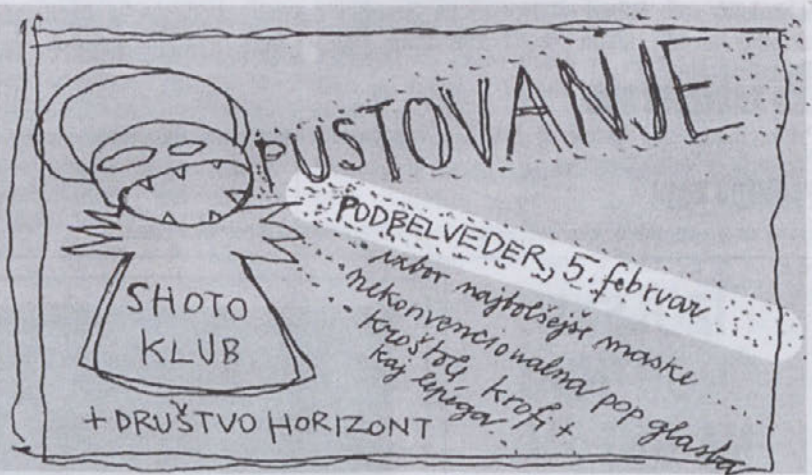 PUSTOVANJE
PODBELVEDER, 5. februar
izbor najboljše maske
nekonvencionalna pop glasba
kroštole, krofi +
kaj lepiga
SHOTO
KLUB
+ DRUŠTVO HORIZONT